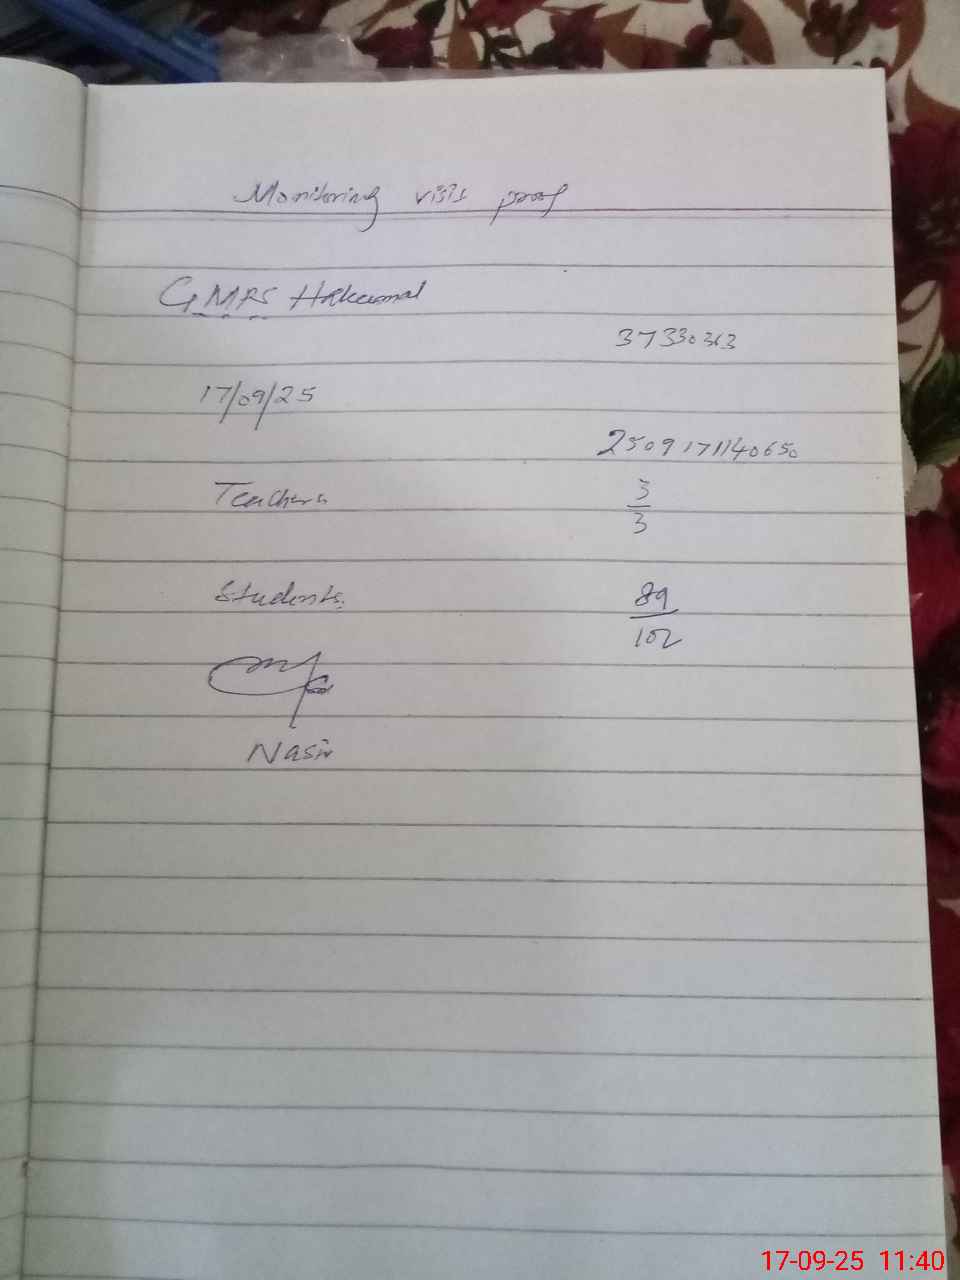 Monitoring visits proof
G.M.P.S Hakumal
37330363
17/09/25
2509171140650
Teachers 3/3
Students 89/102
Nasir
17-09-25 11:40